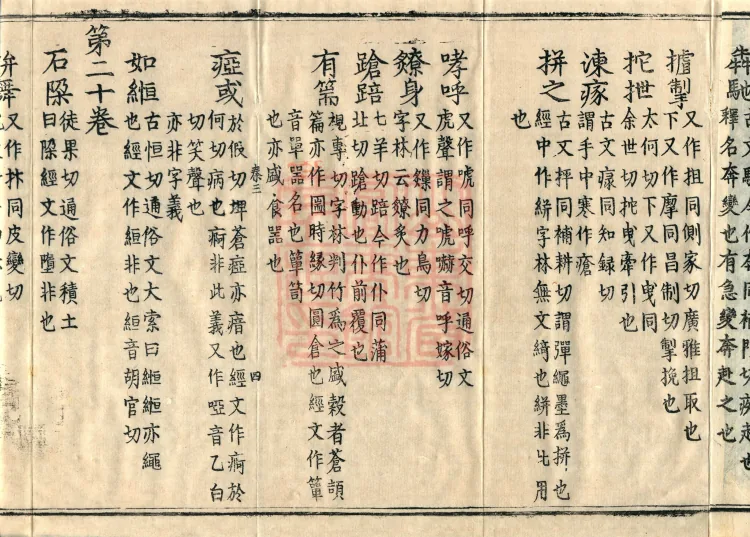 犇馳古文驫今作奔同補門切疾走也
釋名奔變也有急變奔赴之也
摣掣又作抯同側家切廣雅抯取也
下又作摩同昌制切掣挽也
拕抴太何切下又作曳同
余世切拕曳牽引也
涷瘃古文瘃同知録切
謂手中寒作瘡
拼之古又抨同補耕切謂彈繩墨爲拼也
經中作絣字林無文綺也絣非此用
也
哮呼又作唬同呼交切通俗文
虎聲謂之虓㗾音呼嫁切
鐐身又作鏁同力鳥切
字林云鐐炙也
蹌踣七羊切踣今作仆同蒲
北切蹌動也仆前覆也
有篅視專切字林判竹爲之盛穀者蒼頡
篇亦作圌時縁切圓倉也經文作簞
音單器名也簞笥
也亦盛食器也
卷三 四
瘂或於假切埤蒼瘂亦瘖也經文作痾於
何切病也痾非此義又作啞音乙白
切笑聲也
亦非字義
如絙古恒切通俗文大索曰絙絙亦繩
也經文作絙非也絙音胡官切
第二十卷
石㙐徒果切通俗文積土
曰㙐經文作墮非也
又作抃同皮變切